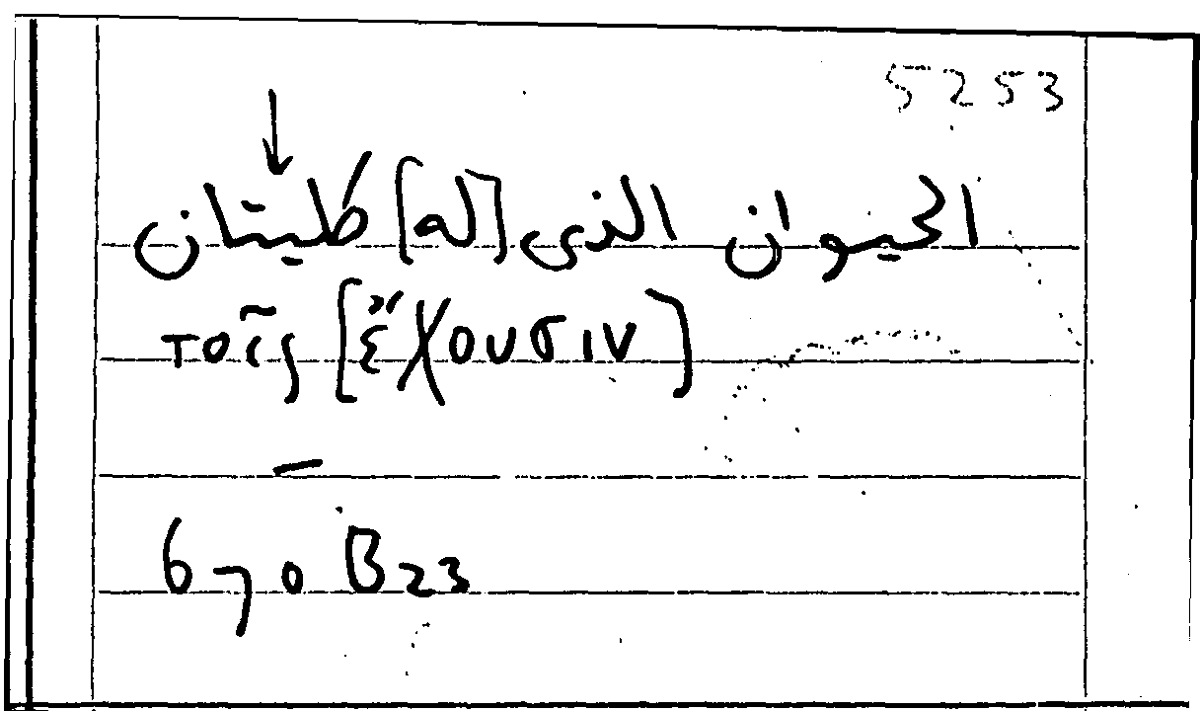 5253
↓
الحيوان الذى [له] كليتان
τοῖς [ἔχουσιν]
–
670 B23